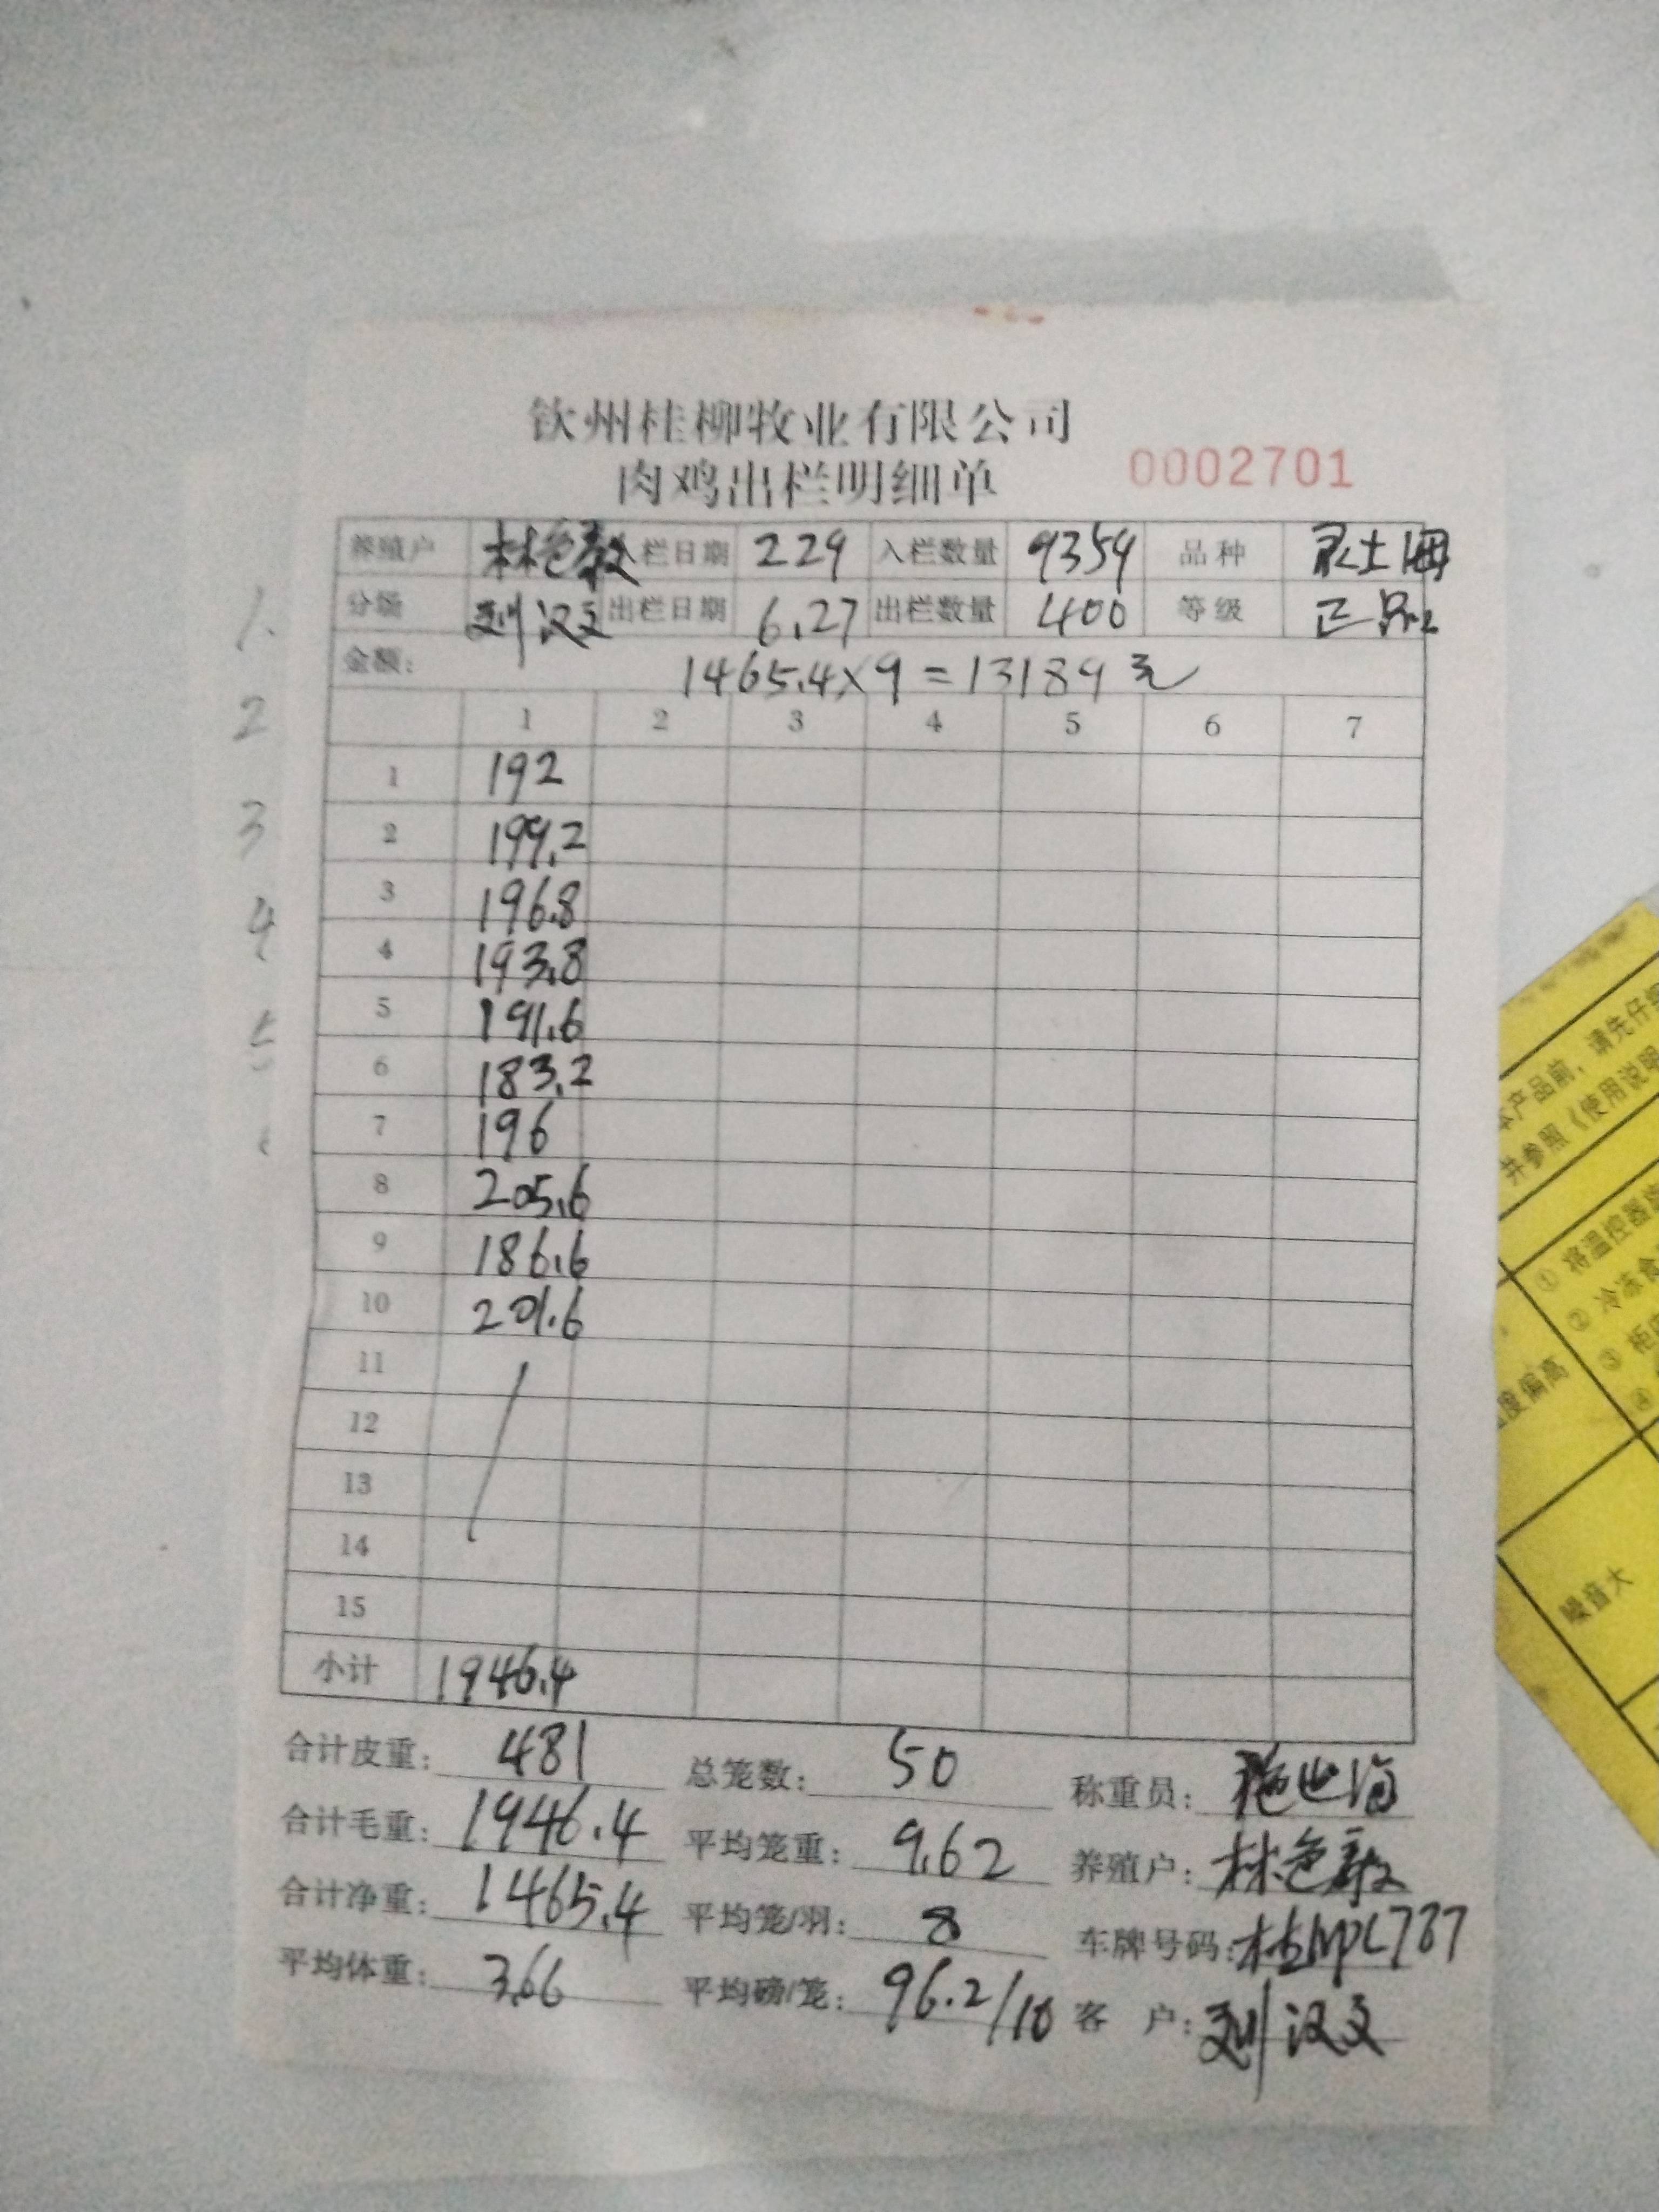 钦州桂柳牧业有限公司
肉鸡出栏明细单
0002701
养殖户 林色敏 入栏日期 229 入栏数量 9359 品种 灵土
分场 刘汉文 出栏日期 6.27 出栏数量 400 等级 正品
金额: 1465.4×9=13189元
1 2 3 4 5 6 7
1 192
2 199.2
3 196.8
4 193.8
5 191.6
6 183.2
7 196
8 205.6
9 186.6
10 201.6
11
12
13
14
15
小计 1946.4
合计皮重: 481 总笼数: 50 称重员:
合计毛重: 1946.4 平均笼重: 9.62 养殖户: 林色敏
合计净重: 1465.4 平均笼/羽: 8 车牌号码: 桂
平均体重: 3.66 平均磅/笼: 96.2/10 客 户: 刘汉文
1.
2
3
4
5
本产品前，请先仔细
并参照《使用说明
① 将温控器
② 冷冻食
③
④
度偏高
噪音大